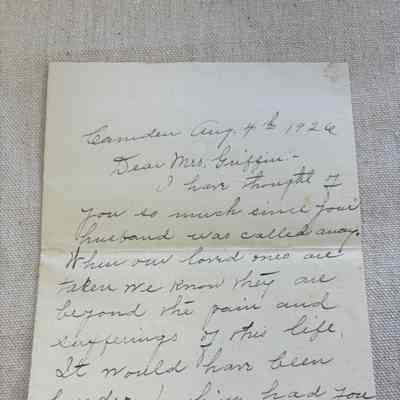 Camden Aug. 4th 1926
Dear Mrs. Griffin -
I have thought of
you so much since your
husband was called away.
When our loved ones are
taken we know they are
beyond the pain and
sufferings of this life.
It would have been
had you